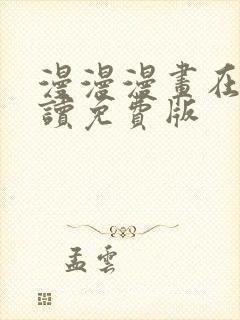 漫漫漫畫在
讀免費版
孟雲